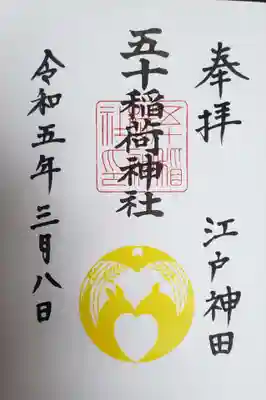 奉拝
江戸神田
五十稲荷神社
令和五年三月八日